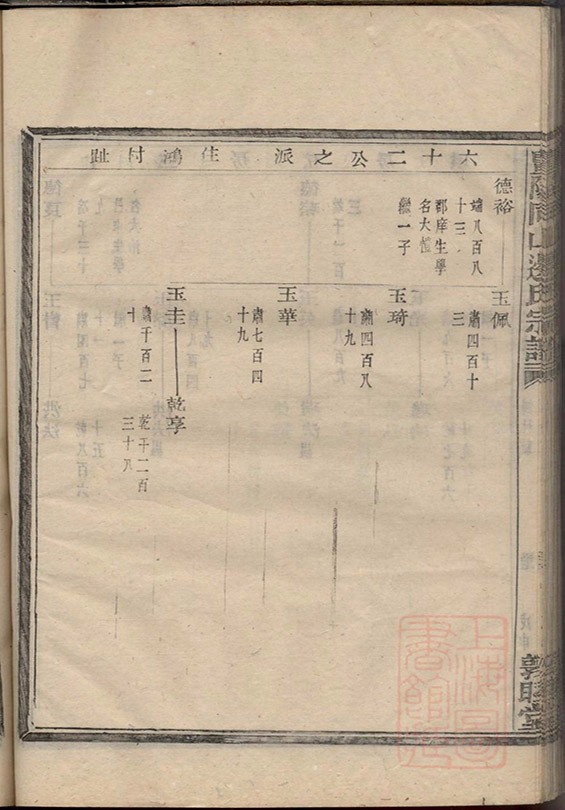 六十二公之派 住鴻村趾
德裕
端八百八
十三
郡庠生學
名大
繼一子
玉佩
肅四百十
三
玉琦
肅四百八
十九
玉華
肅七百四
十九
玉圭
肅千百二
十
乾享
乾千二百
三十八
山邊氏宗譜
敦睦堂
上海圖書館